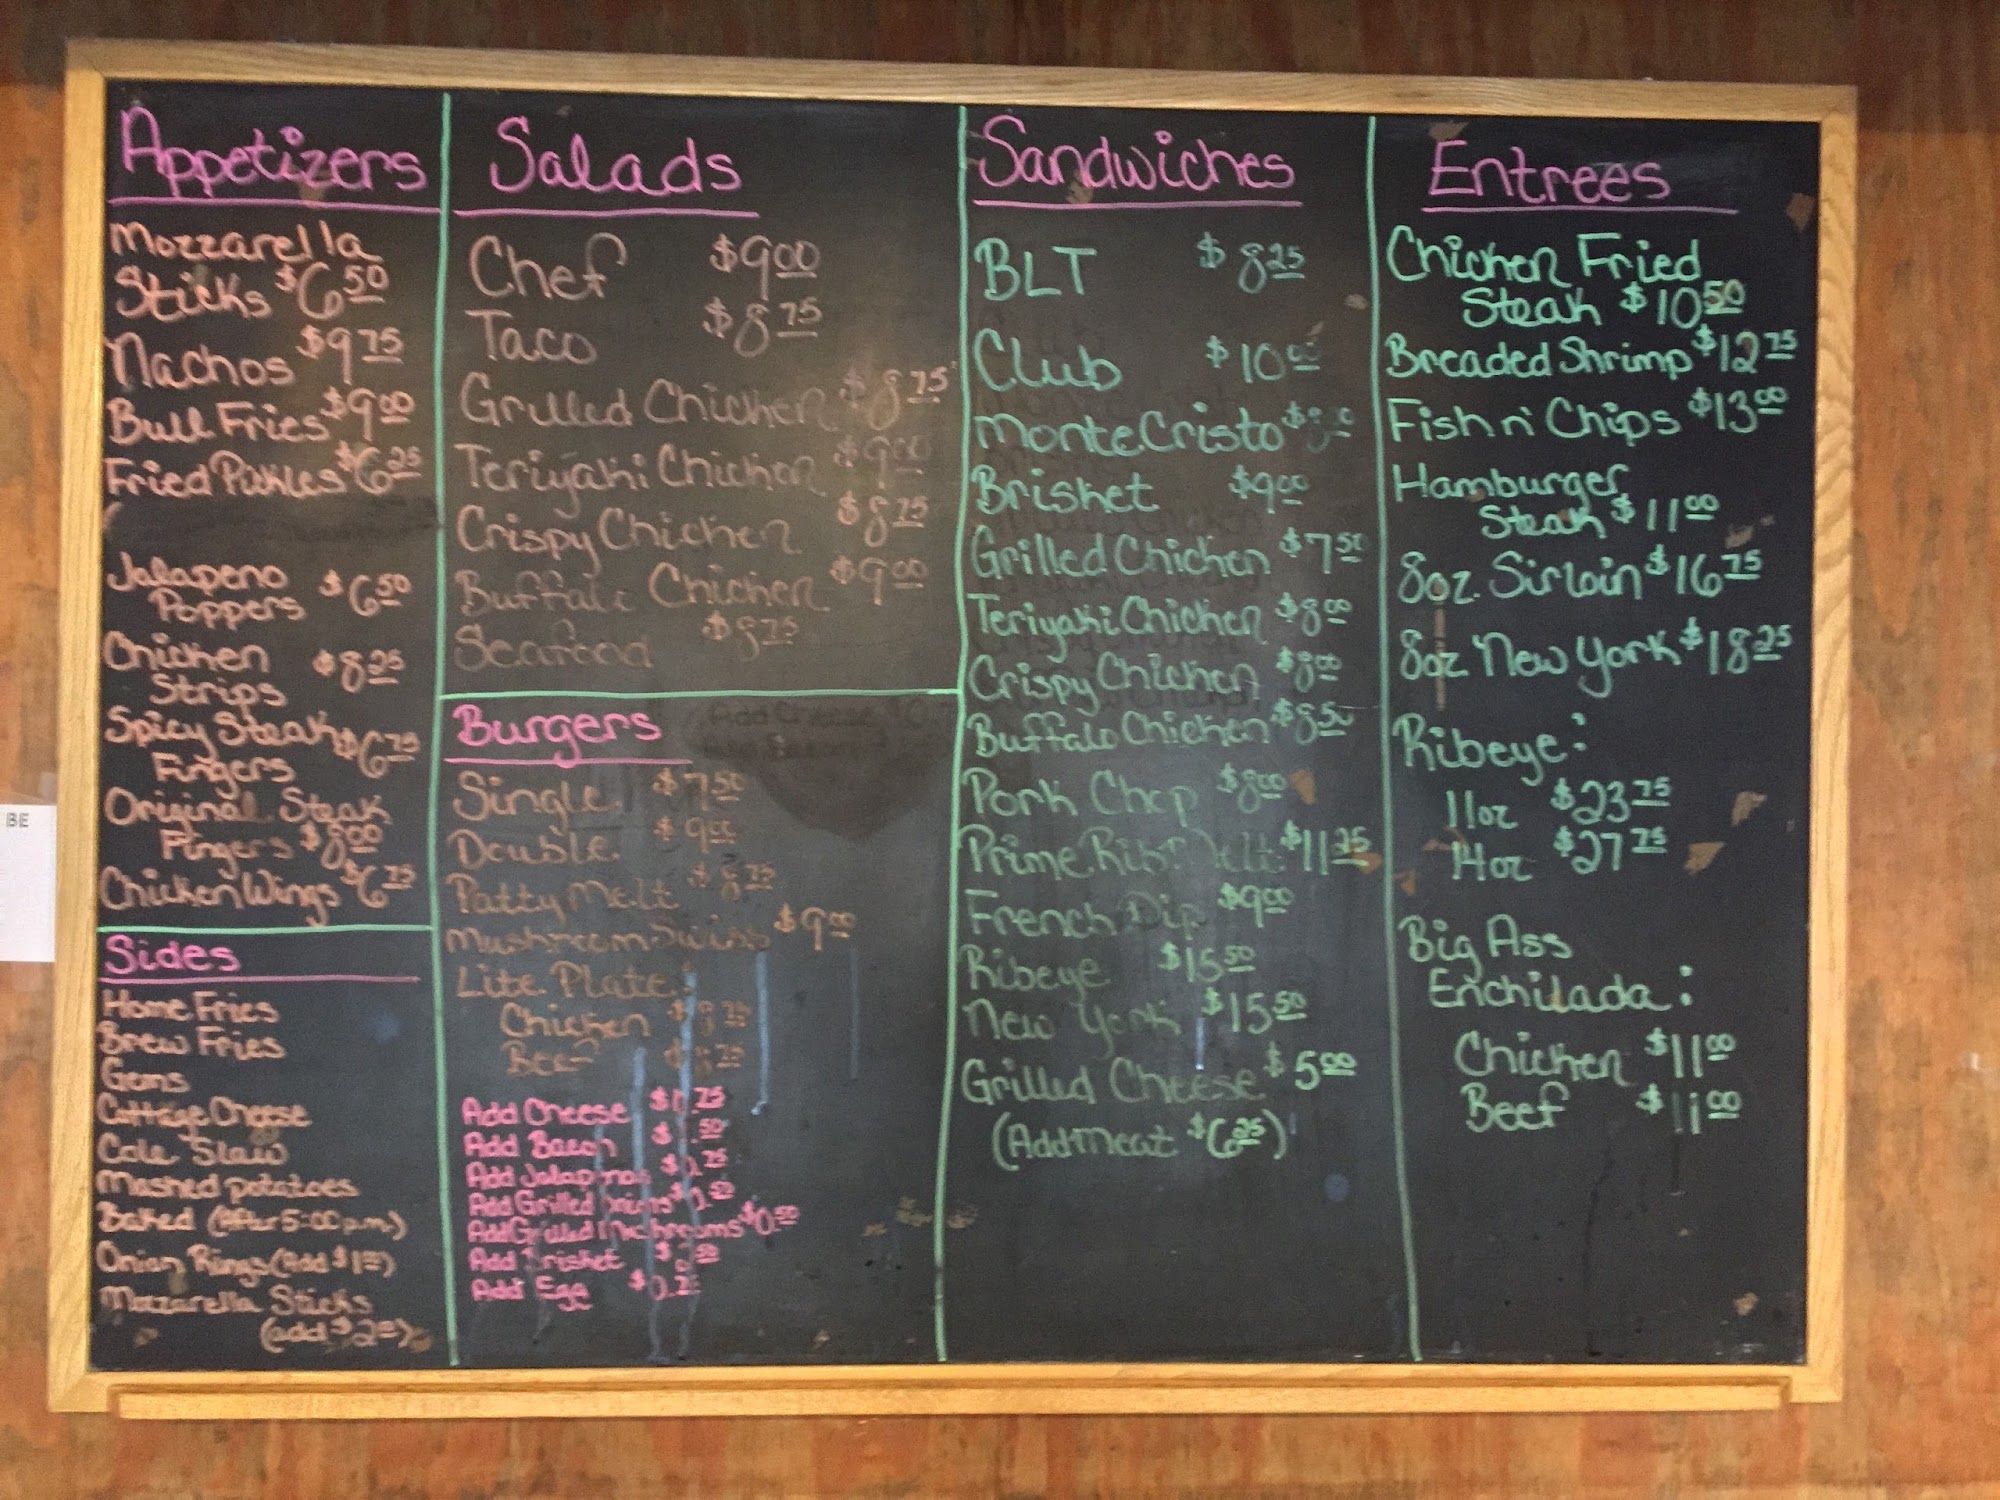 Appetizers
Mozzarella
Sticks $6.50
Nachos $9.75
Bull Fries $9.00
Fried Pickles $6.25
Jalapeno
Poppers $6.50
Chicken
Strips $8.25
Spicy Steak
Fingers $6.75
Original Steak
Fingers $8.00
Chicken Wings $6.75
Sides
Home Fries
Brew Fries
Gems
Cottage Cheese
Cole Slaw
Mashed potatoes
Baked (After 5:00 p.m.)
Onion Rings (Add $1.00)
Mozzarella Sticks
(add $2.00)
Salads
Chef $9.00
Taco $8.75
Grilled Chicken $8.75
Teriyaki Chicken $9.00
Crispy Chicken $8.75
Buffalo Chicken $9.00
Seafood $8.75
Burgers
Single $7.50
Double $9.00
Patty Melt $8.75
Mushroom Swiss $9.00
Lite Plate:
Chicken $8.75
Beef $8.75
Add Cheese $0.75
Add Bacon
Add Jalapenos
Add Grilled Onions $0.50
Add Grilled Mushrooms $0.50
Add Brisket
Add Egg
Sandwiches
BLT $8.25
Club $10.00
Monte Cristo
Brisket $9.00
Grilled Chicken $7.50
Teriyaki Chicken $8.00
Crispy Chicken $8.00
Buffalo Chicken $8.50
Pork Chop $8.00
Prime Rib Melt $11.25
French Dip $9.00
Ribeye $15.50
New York $15.50
Grilled Cheese $5.00
(Add Meat $6.25)
Entrees
Chicken Fried
Steak $10.50
Breaded Shrimp $12.75
Fish n' Chips $13.00
Hamburger
Steak $11.00
8oz. Sirloin $16.75
8oz New York $18.25
Ribeye:
11oz $23.75
14oz $27.75
Big Ass
Enchilada:
Chicken $11.00
Beef $11.00
BE